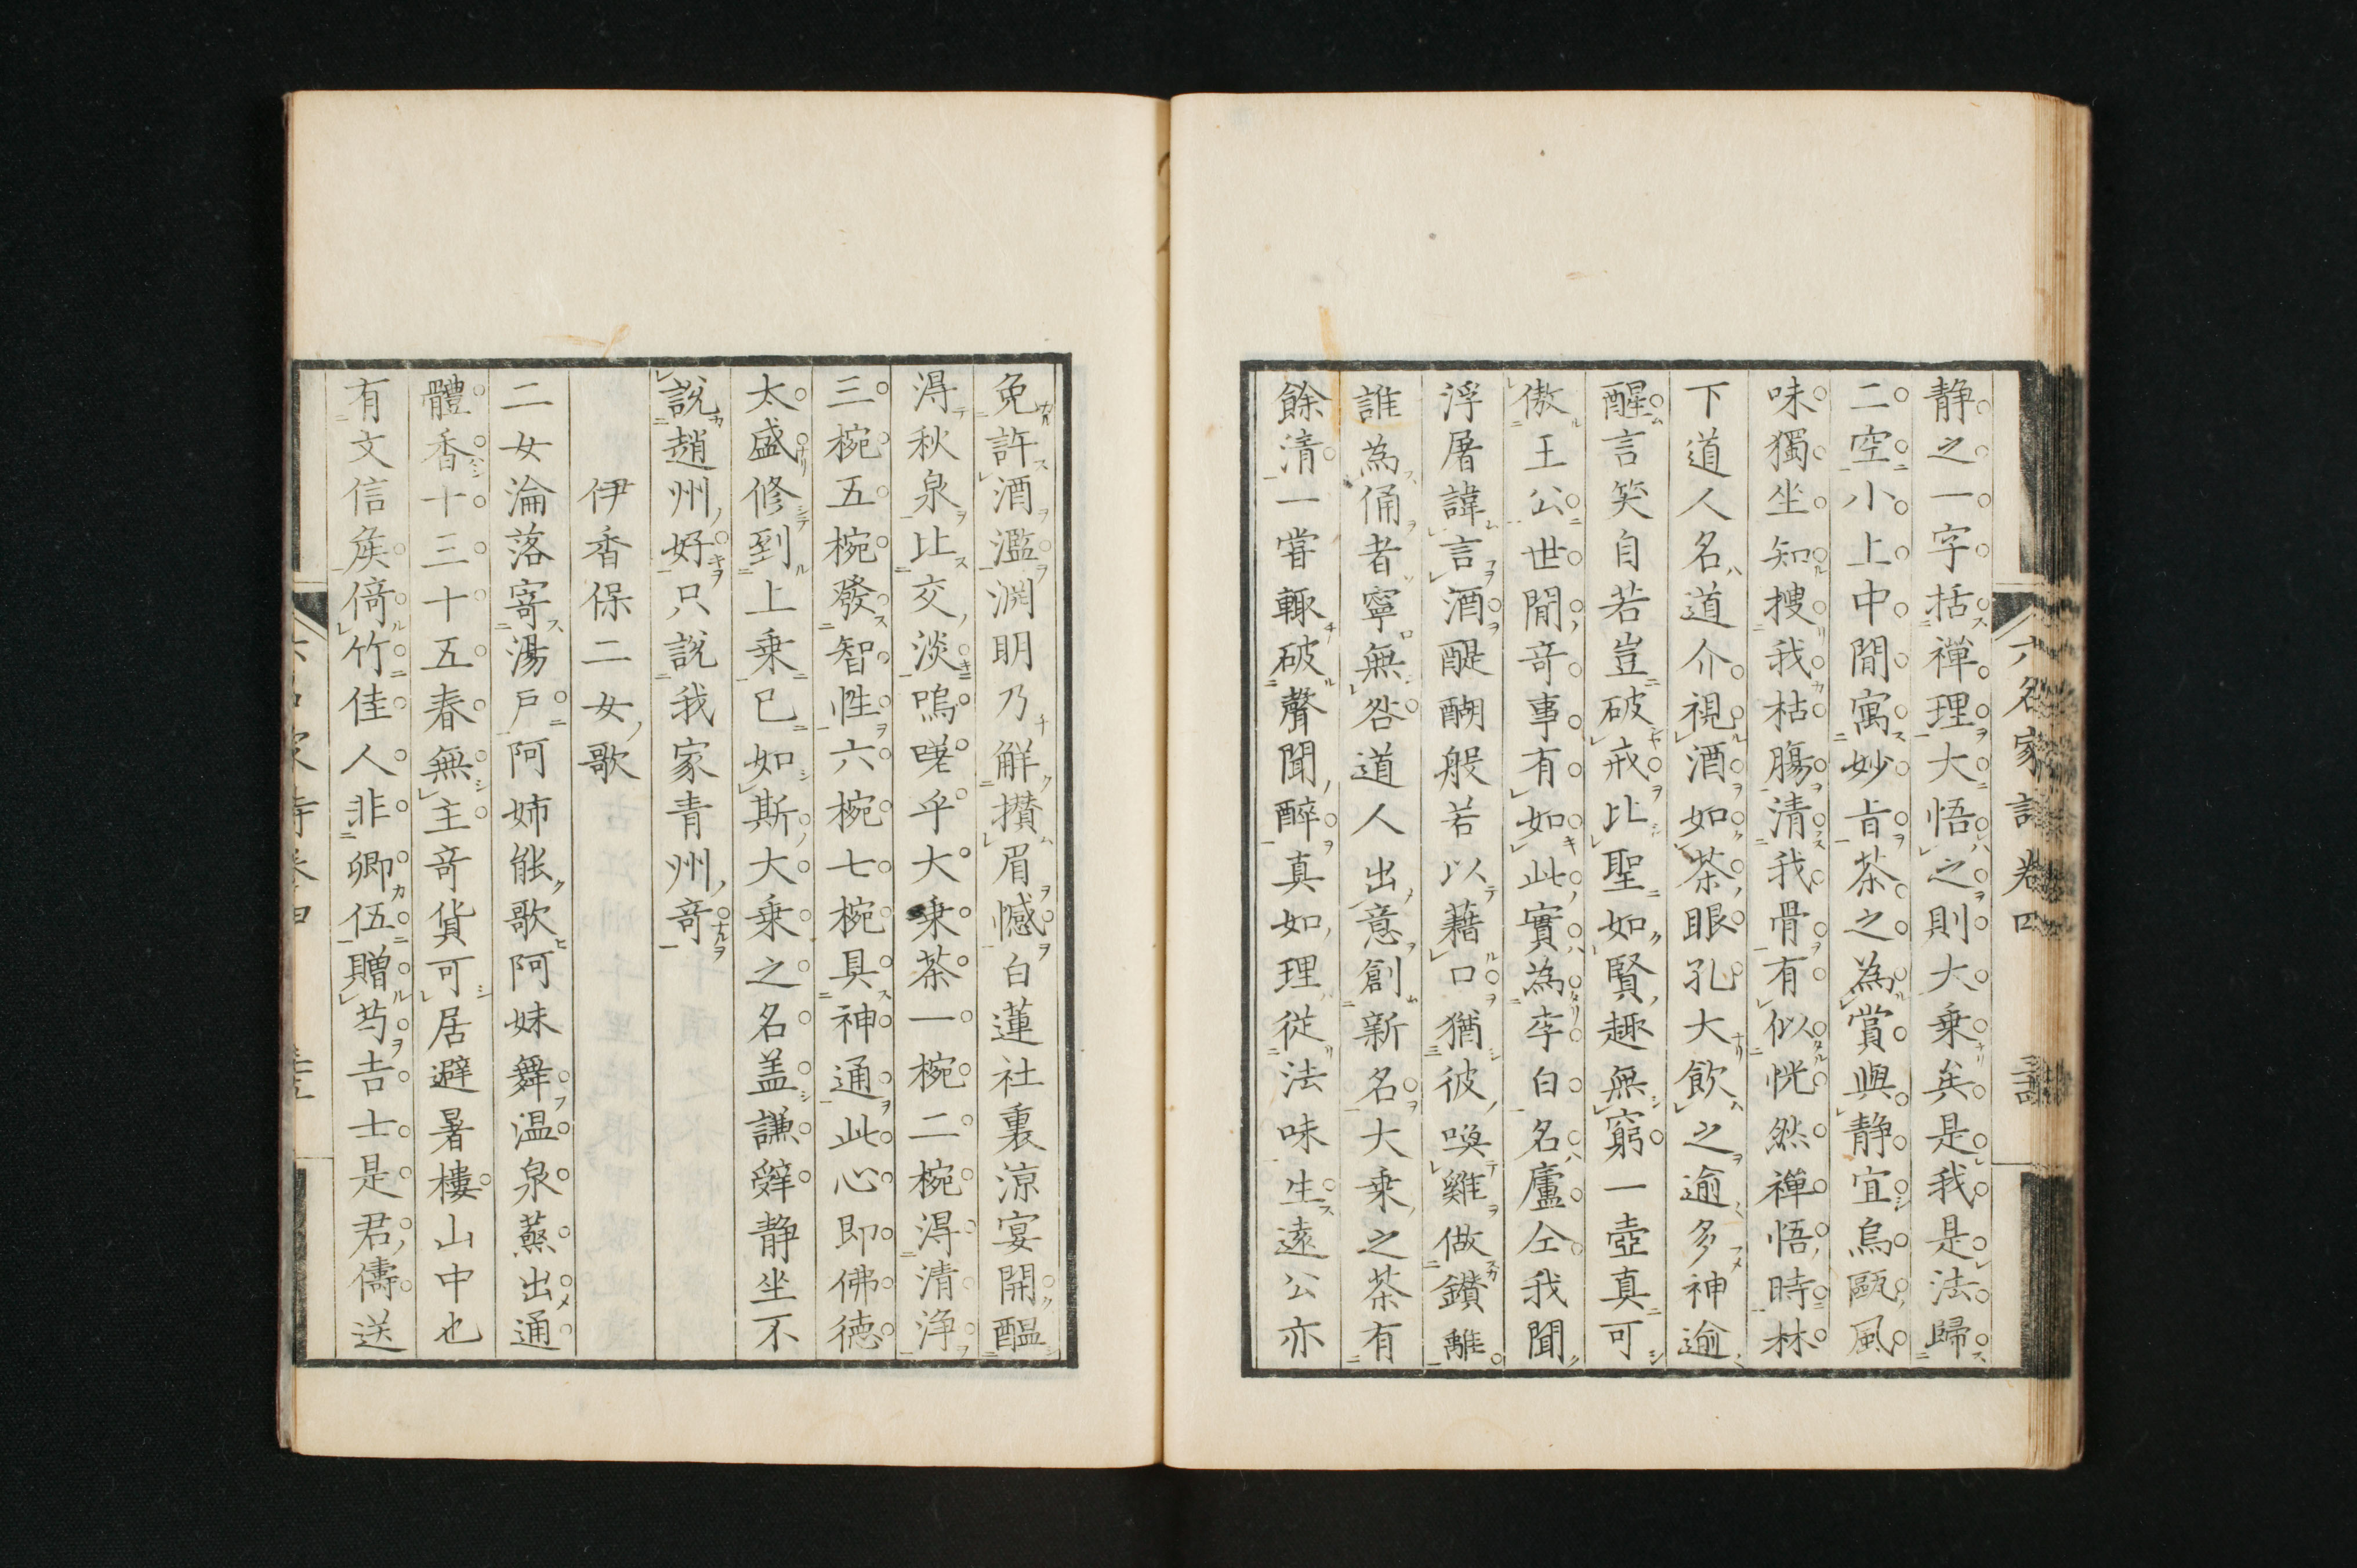 六名家詩卷四
静之一字括禪理大悟之則大乗矣是我是法歸
二空小上中間寓妙㫖茶之為賞與静宜烏甌風
味獨坐知搜我枯腸清我骨有似恍然禅悟時林
下道人名道介視酒如茶眼孔大飲之逾多神逾
醒言笑自若豈破戒比聖如賢趣無窮一壺真可
傲王公世間竒事有如此實為李白名廬仝我聞
浮屠諱言酒醍醐般若以藉口猶彼喚雞做鑚離
誰為俑者寧無咎道人出意創新名大乗之茶有
餘清一嘗輙破聲聞醉真如理從法味生遠公亦
免許酒濫淵明乃觧攅眉憾白蓮社裏涼宴開醖
得秋泉比交淡嗚嘑乎大乗茶一椀二椀得清浄
三椀五椀發智性六椀七椀具神通此心即佛徳
太盛修到上乗已如斯大乗之名盖謙辤静坐不
說趙州好只説我家青州竒
伊香保二女歌
二女淪落寄湯戸阿姉能歌阿妹舞温泉蒸出通
體香十三十五春無主竒貨可居避暑樓山中也
有文信矦倚竹佳人非卿伍贈芍吉士是君儔送